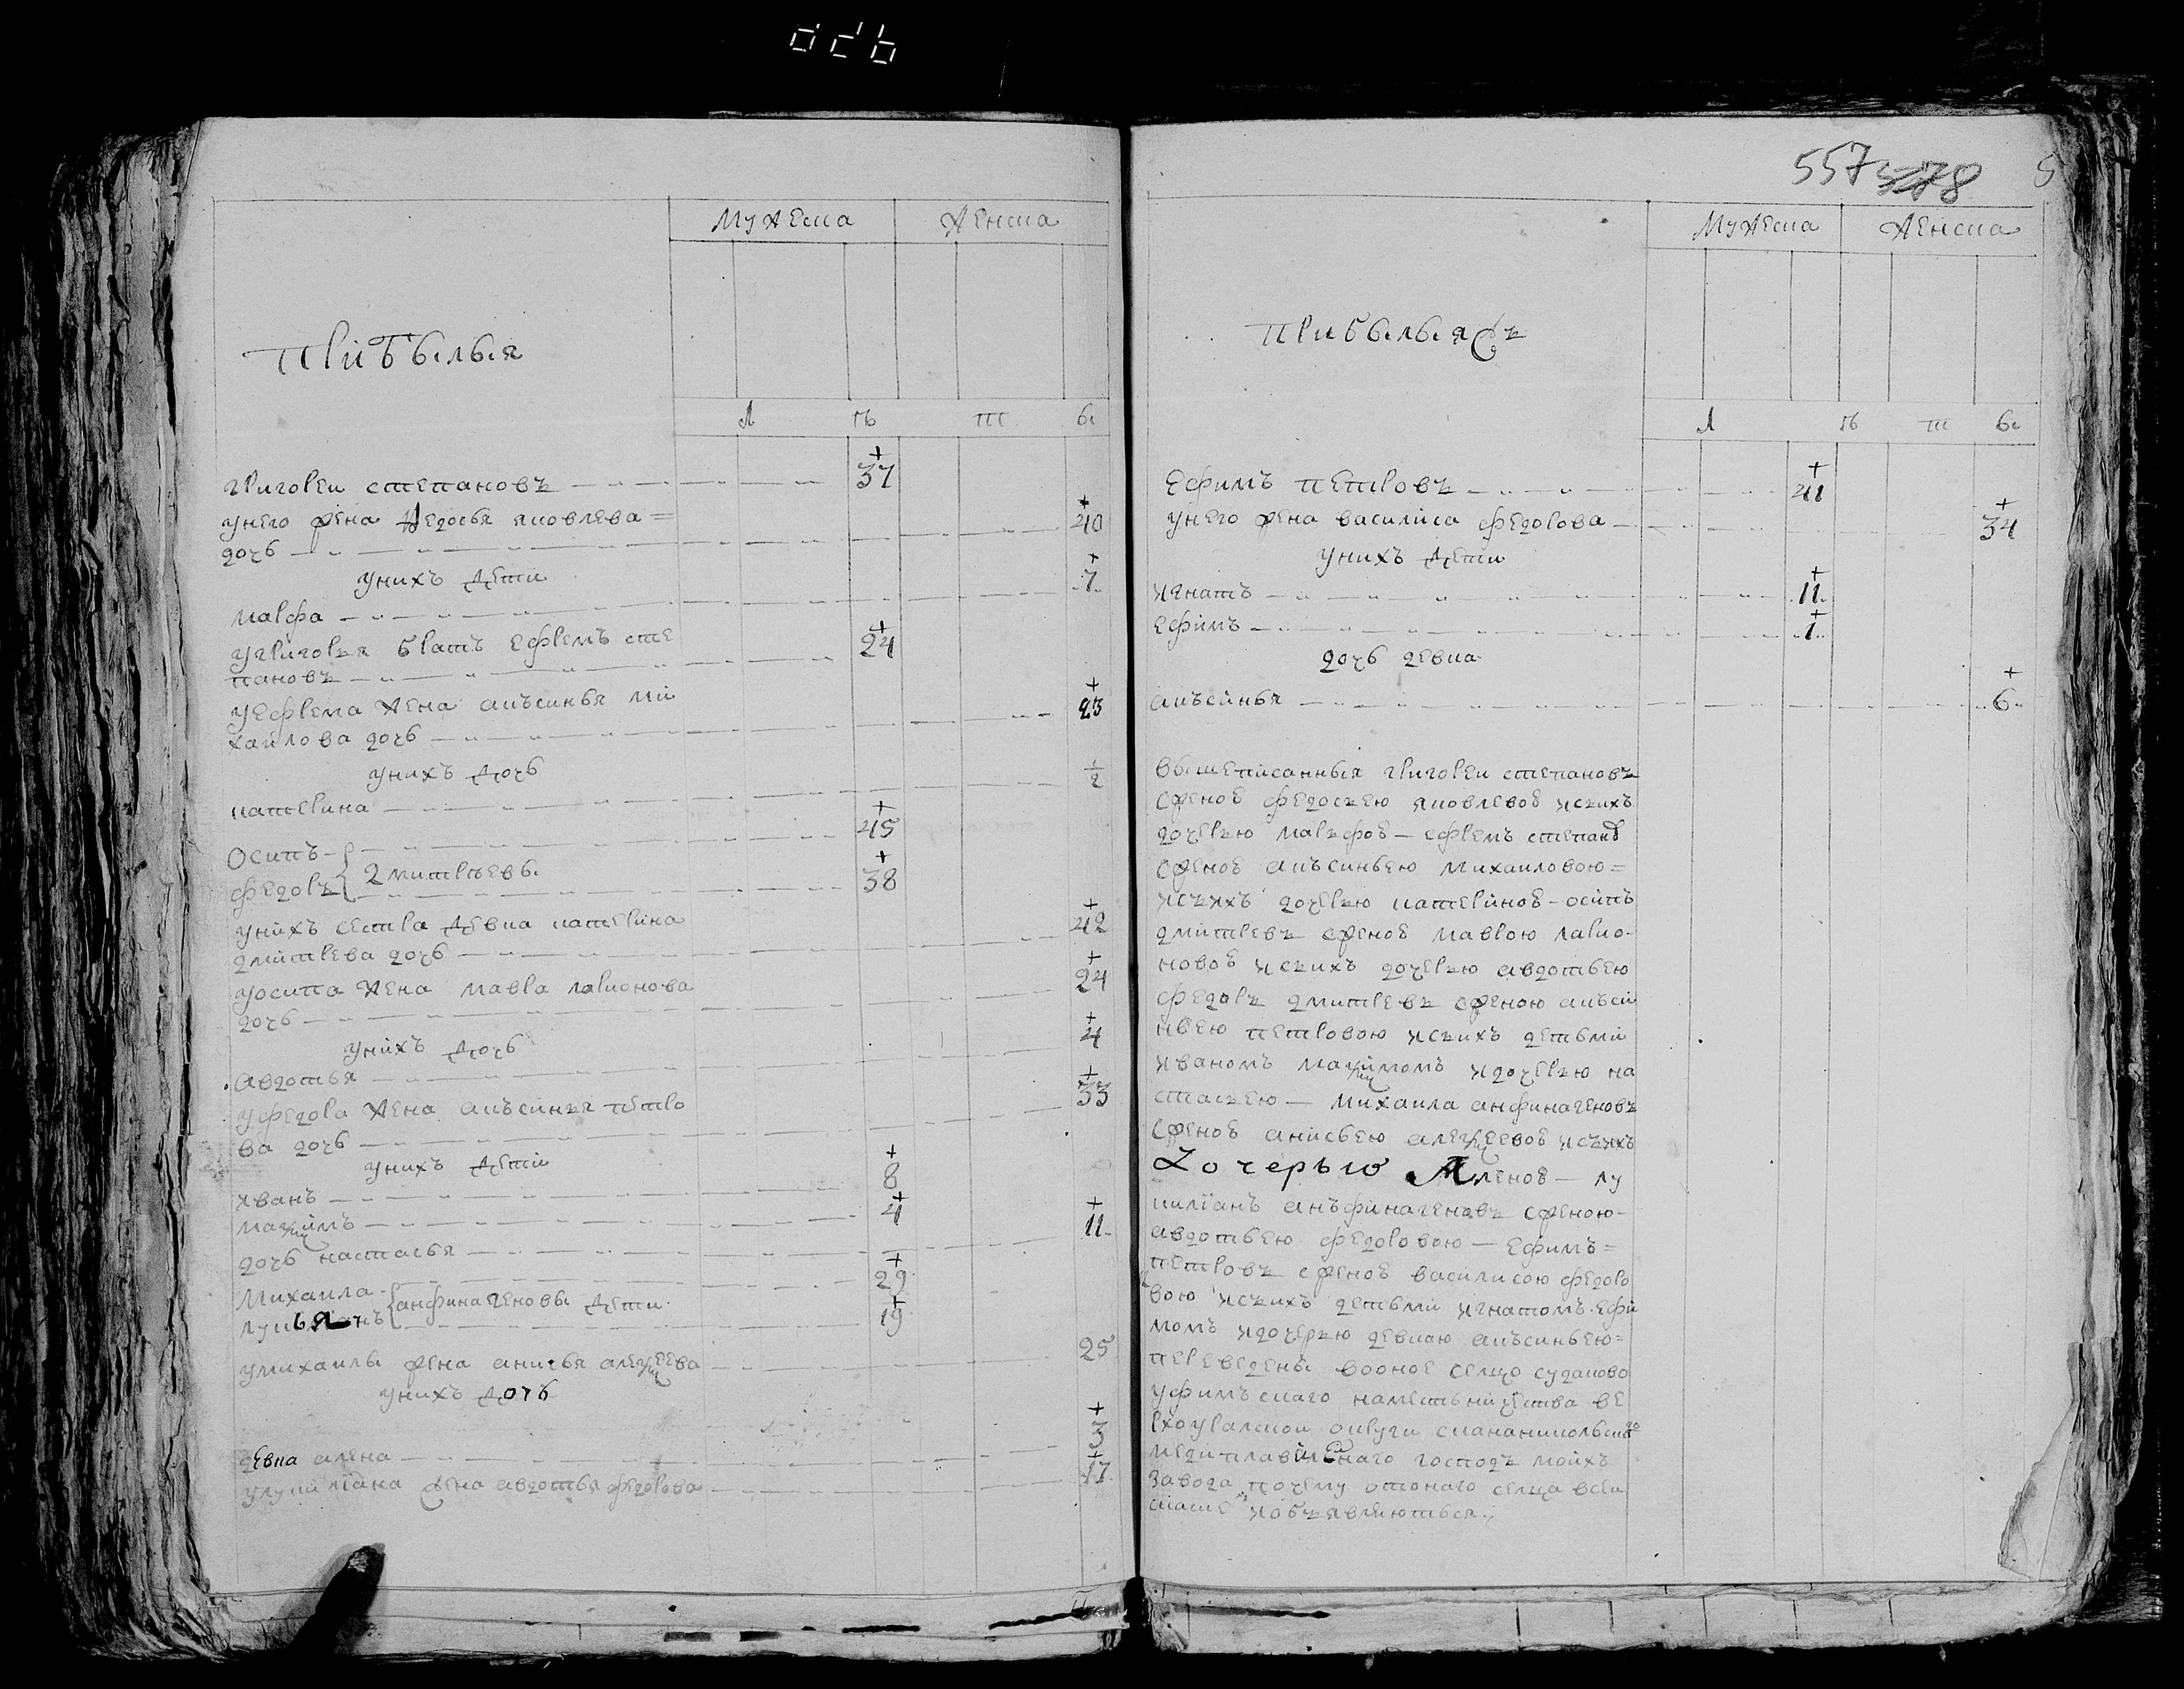 Мужеска Женска
прибылыя
л ѣ т ы
григореи степановъ 37
унего жена Федосья яковлева= 40
дочь
унихъ дети 7
марфа
угригоръя братъ ефремъ сте 24
пановъ
уефрема жена акъсинья ми 23
хаилова дочь
унихъ дочь ½
катерина
Осипъ 45
федоръ дмитрѣевы 38
унихъ сестра девка катерина 42
дмитрева дочь
уосипа жена мавра лариюнова 24
дочь
унихъ дочь 4
авдотья
уфедора жена акъсинъя петро 33
ва дочь
унихъ дети
иванъ 8
максимъ 4
дочь настасья 11
Михаила анфиногеновы дети 29
лукьянъ 19
умихаилы жена анисья алексеева 25
унихъ дочь
девка алена 3
улукилїана жена авдотья федорова 17
557 578
Мужеска Женска
прибылыя съ
л ѣ т ы
ефимъ петровъ 41
унего жена василиса федорова 34
унихъ дети
игнатъ 11
ефимъ 1
дочь девка
акъсинья 6
вышеписанныя григореи степановъ
сженоѣ федосъею яковлевоѣ исъихъ
дочеръю маръфоѣ — ефремъ степанѣ
сженоѣ акъсиньею михаиловою=
исъихъ дочеръю катериноѣ — осипъ
дмитревъ сженоѣ маврою ларио-
новоѣ исъихъ дочеръю авдотьею
федоръ дмитревъ сженою акъси
нѣею петровою исъихъ детьми
иваномъ максимомъ идочеръю на
стасъею — михаила анфинагеновъ
сженоѣ анисьею алексеевоѣ исъихъ
Дочерью Аленоѣ — лу
килїанъ анъфинагеновъ сженою-
авдотьею федоровою — ефимъ=
петровъ сженоѣ василисою федоро
вою исъихъ детьми игнатомъ ефи
момъ идочерью девкаю акъсиньею=
переведены вооное селцо судаково
уфимъскаго наместьничества ве
рхоуралскои округи скананикольскаго
медиплавиленаго господъ моихъ
завода почему отонаго селца всеи
скаске иобъявляютьса.